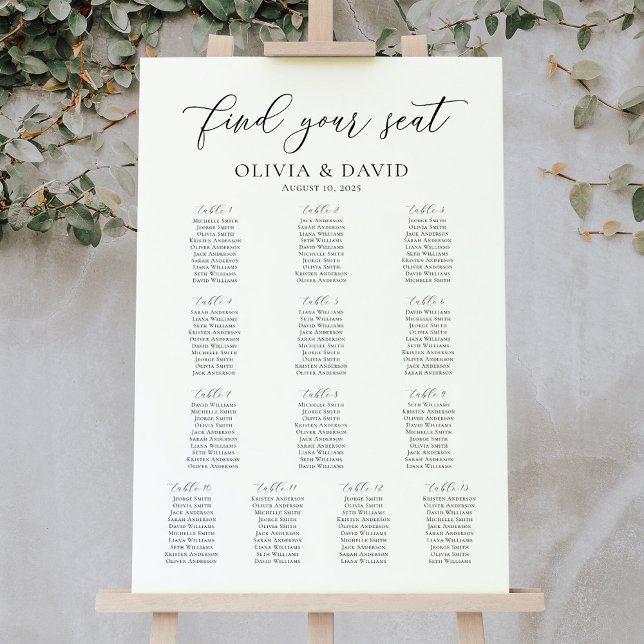 find your seat
OLIVIA & DAVID
AUGUST 10, 2025
table 1
MICHELLE SMITH
JEORGE SMITH
OLIVIA SMITH
KRISTEN ANDERSON
OLIVER ANDERSON
JACK ANDERSON
SARAH ANDERSON
LIANA WILLIAMS
SETH WILLIAMS
DAVID WILLIAMS
table 2
JACK ANDERSON
SARAH ANDERSON
LIANA WILLIAMS
SETH WILLIAMS
DAVID WILLIAMS
MICHELLE SMITH
JEORGE SMITH
OLIVIA SMITH
KRISTEN ANDERSON
OLIVER ANDERSON
table 3
JEORGE SMITH
OLIVIA SMITH
JACK ANDERSON
SARAH ANDERSON
LIANA WILLIAMS
SETH WILLIAMS
KRISTEN ANDERSON
OLIVER ANDERSON
DAVID WILLIAMS
MICHELLE SMITH
table 4
SARAH ANDERSON
LIANA WILLIAMS
SETH WILLIAMS
KRISTEN ANDERSON
OLIVER ANDERSON
DAVID WILLIAMS
MICHELLE SMITH
JEORGE SMITH
OLIVIA SMITH
JACK ANDERSON
table 5
LIANA WILLIAMS
SETH WILLIAMS
DAVID WILLIAMS
JACK ANDERSON
SARAH ANDERSON
MICHELLE SMITH
JEORGE SMITH
OLIVIA SMITH
KRISTEN ANDERSON
OLIVER ANDERSON
table 6
DAVID WILLIAMS
MICHELLE SMITH
JEORGE SMITH
OLIVIA SMITH
LIANA WILLIAMS
SETH WILLIAMS
KRISTEN ANDERSON
OLIVER ANDERSON
SARAH ANDERSON
JACK ANDERSON
table 7
DAVID WILLIAMS
MICHELLE SMITH
JEORGE SMITH
OLIVIA SMITH
JACK ANDERSON
SARAH ANDERSON
LIANA WILLIAMS
SETH WILLIAMS
KRISTEN ANDERSON
OLIVER ANDERSON
table 8
MICHELLE SMITH
JEORGE SMITH
OLIVIA SMITH
KRISTEN ANDERSON
OLIVER ANDERSON
JACK ANDERSON
SARAH ANDERSON
LIANA WILLIAMS
SETH WILLIAMS
DAVID WILLIAMS
table 9
SETH WILLIAMS
KRISTEN ANDERSON
OLIVER ANDERSON
DAVID WILLIAMS
MICHELLE SMITH
JEORGE SMITH
OLIVIA SMITH
JACK ANDERSON
SARAH ANDERSON
LIANA WILLIAMS
table 10
JEORGE SMITH
OLIVIA SMITH
JACK ANDERSON
SARAH ANDERSON
DAVID WILLIAMS
MICHELLE SMITH
LIANA WILLIAMS
SETH WILLIAMS
KRISTEN ANDERSON
OLIVER ANDERSON
table 11
KRISTEN ANDERSON
OLIVER ANDERSON
MICHELLE SMITH
JEORGE SMITH
OLIVIA SMITH
JACK ANDERSON
SARAH ANDERSON
LIANA WILLIAMS
SETH WILLIAMS
DAVID WILLIAMS
table 12
JEORGE SMITH
OLIVIA SMITH
SETH WILLIAMS
KRISTEN ANDERSON
OLIVER ANDERSON
DAVID WILLIAMS
MICHELLE SMITH
JACK ANDERSON
SARAH ANDERSON
LIANA WILLIAMS
table 13
KRISTEN ANDERSON
OLIVER ANDERSON
DAVID WILLIAMS
MICHELLE SMITH
JACK ANDERSON
SARAH ANDERSON
LIANA WILLIAMS
JEORGE SMITH
OLIVIA SMITH
SETH WILLIAMS